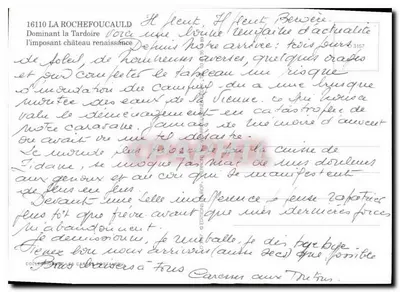 16110 LA ROCHEFOUCAULD
Dominant la Tardoire
l'imposant château renaissance
Il pleut, Il pleut, Bergère.
Voici une bonne rengaine d'actualité
Depuis notre arrivée : trois jours
de soleil, de nombreuses averses, quelques orages
et pour compléter le tableau un risque
d'inondation du camping dû à une brusque
montée des eaux de la Vienne. Ce qui nous a
valu le déménagement en catastrophe de
notre caravane. Jamais de mémoire d'amont
on avait vu un tel désastre.
Le monde
se moque pas mal de mes douleurs
aux genoux et au cou qui se manifestent
de plus en plus.
Devant une telle indifférence, je pense rapatrier
plus tôt que prévu avant que mes dernières forces
m'abandonnent.
Je démissionne, je remballe, je dis bye bye
Tenez bon nous arrivons (aussi sec) que possible
Bons baisers à Tous
Caresses aux